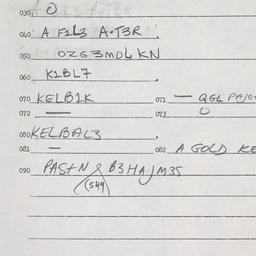 030 O
040 A F1L3 A•T3R.
050 OZG3MOL KN
060 K1BL7.
070 KELB1K 071 — QGL
072 — 073 O
080 KELBAL3.
081 — 082 A GOLD KE
090 PAStN & B3HAJM35
(549)